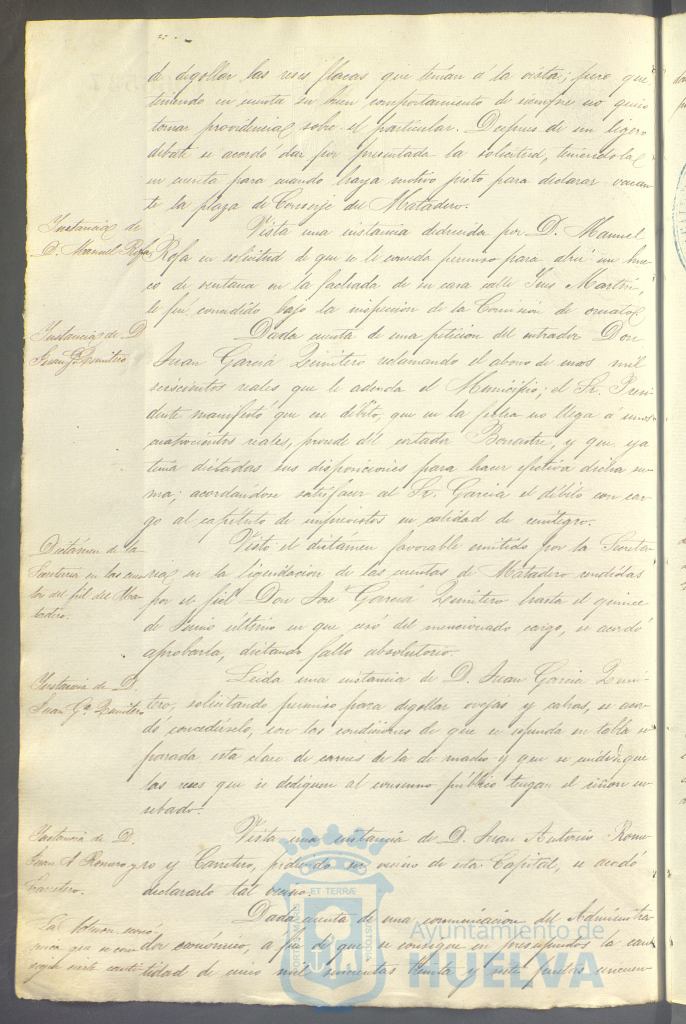 de degollar las reses flacas que tenian á la vista; pero que
teniendo en cuenta su buen comportamiento de siempre no quiso
tomar providencia sobre el particular. Despues de un ligero
debate se acordó dar por presentada la solicitud, teniendola
en cuenta para cuando haya motivo justo para declarar vacan-
te la plaza de Conserje del Matadero.
Instancia de
D. Manuel Rofa
Vista una instancia deducida por D. Manuel
Rofa en solicitud de que se le conceda permiso para abrir un hue-
co de ventana en la fachada de su casa calle
le fué concedido bajo la inspeccion de la Comision de ornato.
Instancia de D.
Juan G. Quintero
Dada cuenta de una peticion del entrador Don
Juan García Quintero reclamando el abono de unos mil
seiscientos reales que le adeuda el Municipio; el Sr. Presi-
dente manifestó que ese débito, que en la fecha no llega á unos
cuatrocientos reales, procede del cortador y que ya
tenia dictadas sus disposiciones para hacer efectiva dicha su-
ma; acordandose satisfacer al Sr. Garcia el débito con car-
go al capítulo de imprevistos en calidad de reintegro.
Dictámen de la
Secretaria en las cuen-
tas del fiel del Ma-
tadero.
Visto el dictámen favorable emitido por la Secreta-
ria en la liquidacion de las cuentas de Matadero rendidas
por el fiel Don José García Quintero hasta el quince
de Junio último en que cesó del mencionado cargo, se acordó
aprobarla, dictando fallo absolutorio.
Instancia de D.
Juan Gª. Quintero
Leida una instancia de D. Juan Garcia Quin-
tero, solicitando permiso para degollar ovejas y cabras, se acor-
dó concedérselo, con las condiciones de que se espenda en tabla se-
parada esta clase de carnes de la de macho y que se
las reses que se dediquen al consumo público tengan el riñon cu-
bierto.
Instancia de D.
Juan A. Romero y
Carretero.
Vista una instancia de D. Juan Antonio Rome-
ro y Carretero, pidiendo ser vecino de esta Capital, se acordó
declararlo tal vecino.
que se con-
signe cantidad
Dada cuenta de una comunicacion del Administra-
dor económico, a fin de que se consigne en presupuestos la can-
tidad de cinco mil novecientas treinta y siete pesetas cincuen-
PORTUS MARIS
ET TERRÆ
CUSTODIA
Ayuntamiento de
HUELVA